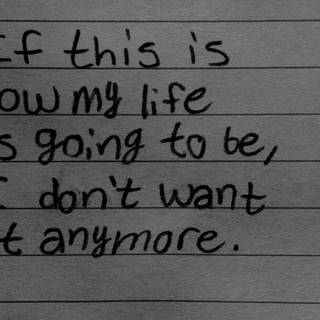 If this is
ow my life
s going to be,
I don't want
t anymore.